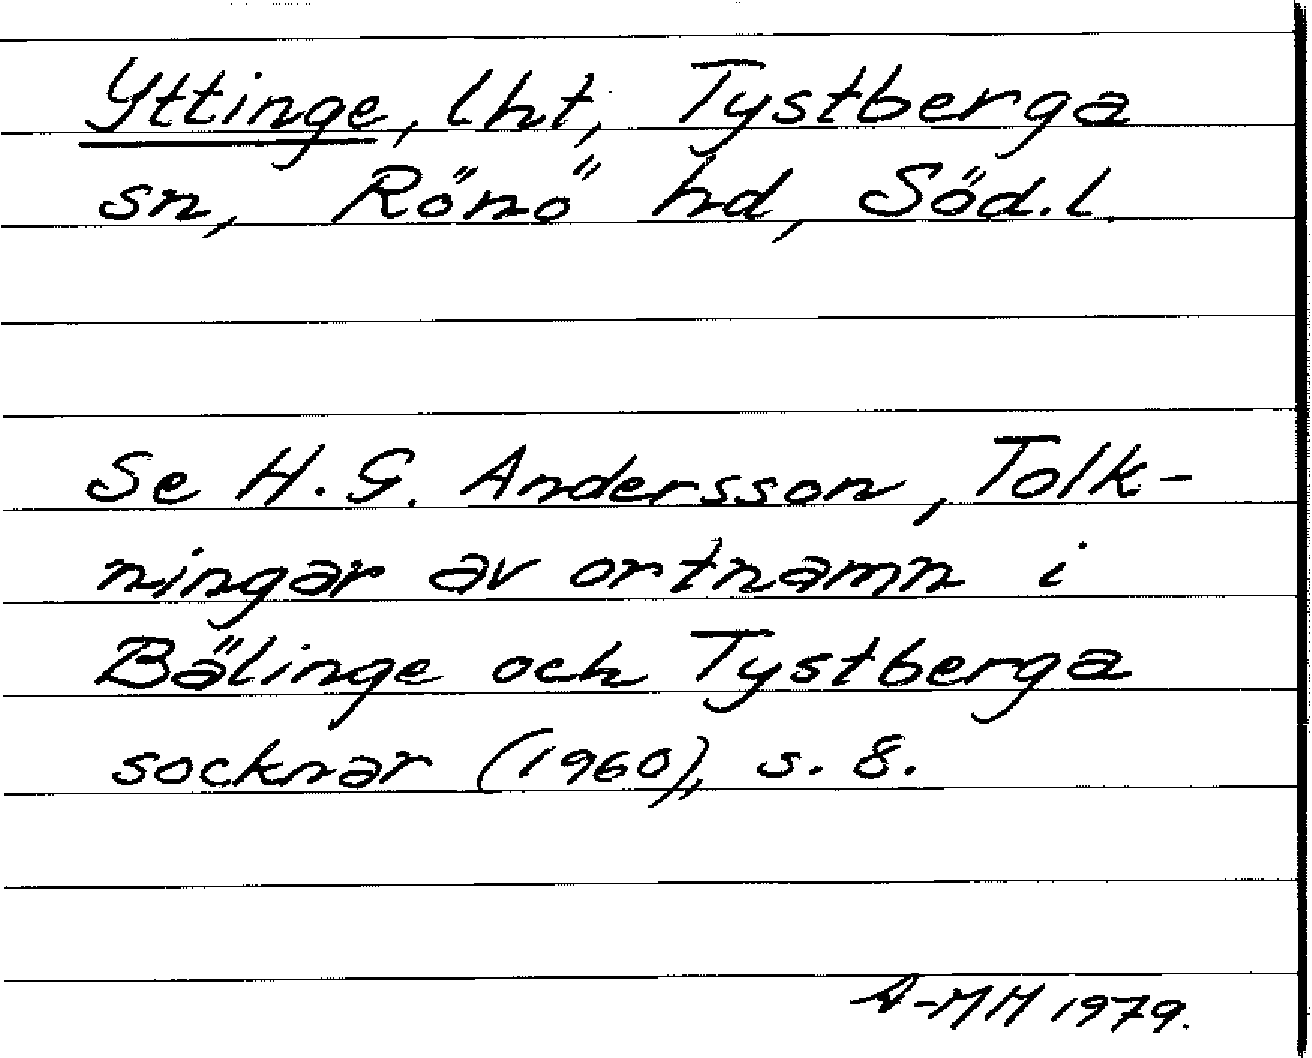 Yttinge, lht, Tystberga
sn, Rönö hd, Söd.l.
Se H.G. Andersson, Tolk-
ningar av ortnamn i
Bälinge och Tystberga
socknar (1960), s. 8.
A-MH 1979.